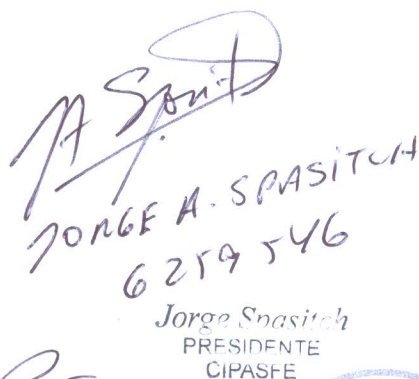 JORGE A. SPASITCH
6259546
Jorge Spasitch
PRESIDENTE
CIPASFE